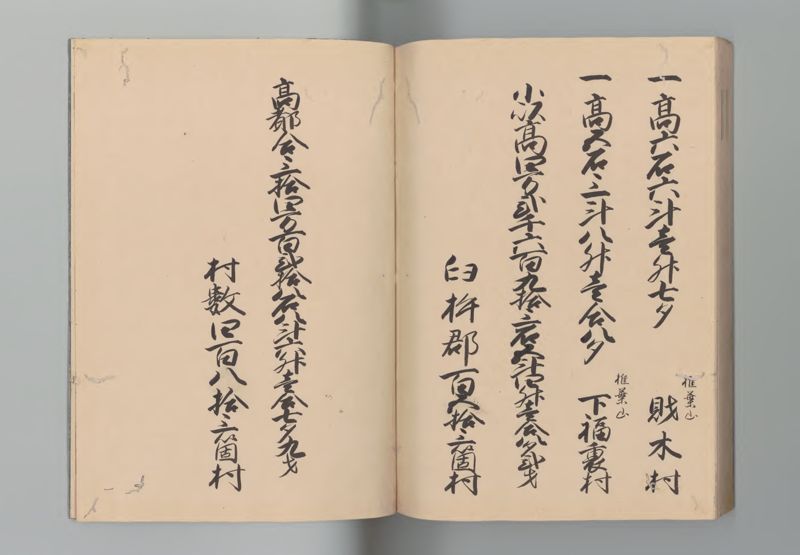 一高六石六斗壱升七夕
椎葉山
財木村
一高五石三斗八升壱合八夕
椎葉山
下福良村
小以高四万弐千六百九拾三石五斗四升壱合八夕弐才
臼杵郡百五拾三箇村
高都合三拾四万百弐拾八石八斗六升壱合七夕九才
村数四百八拾三箇村